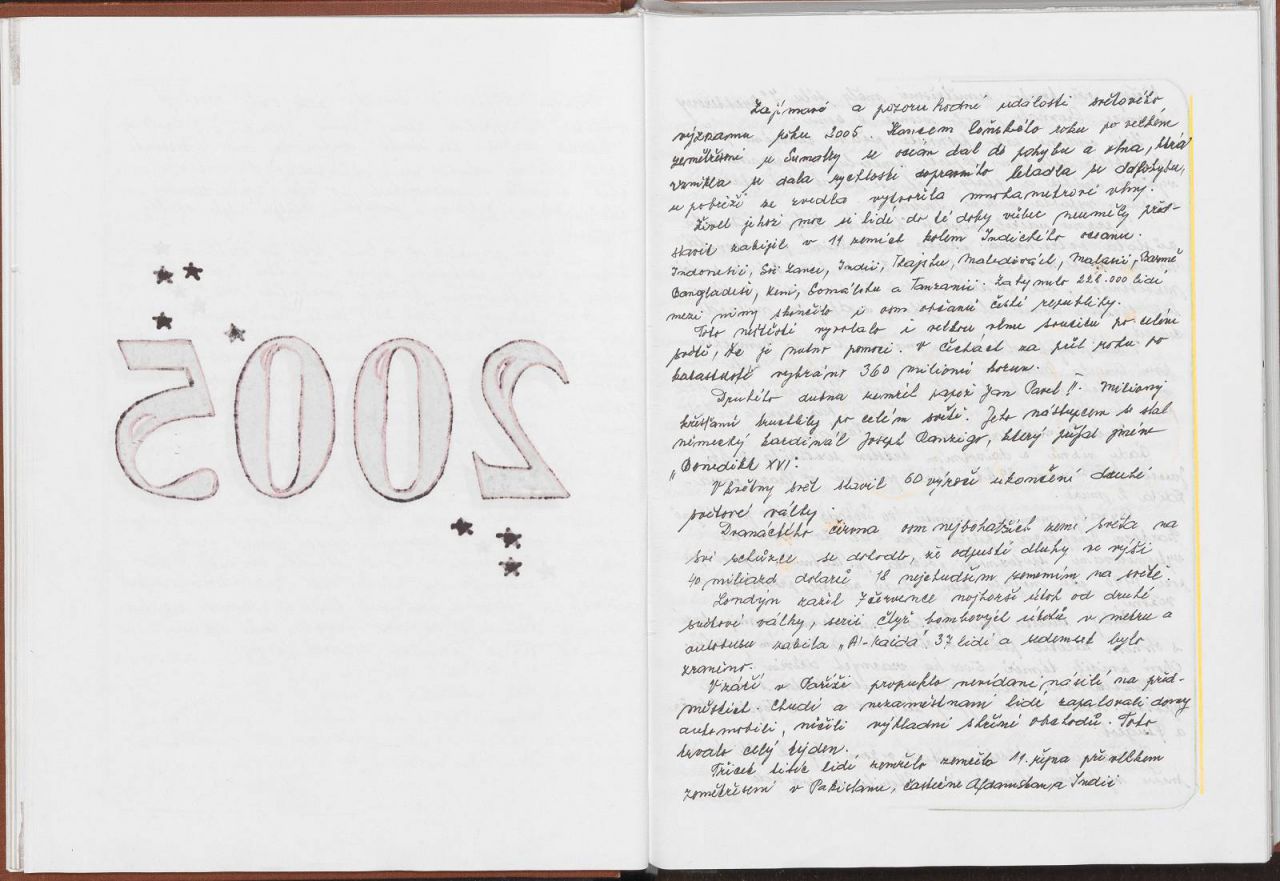 2005
Zajímavé a pozoru hodné události světového
významu roku 2005. Koncem loňského roku po velkém
zemětřesení u Sumatry se oceán dal do pohybu a vlna, která
vznikla se dala rychlostí dopravního letadla se do pohybu,
u pobřeží se zvedla vytvořila mnohametrové vlny.
Živel jehož moc si lidé do té doby vůbec neuměly před-
stavit zabíjel v 11 zemích kolem Indického oceánu.
Indonesii, Srí Lance, Indii, Thajsku, Maledivách, Malasii, Barmě
Bangladeši, Keni, Somálsku a Tanzanii. Zahynulo 226.000 lidí
mezi nimy skončilo i osm občanů české republiky.
Toto neštěstí vyvolalo i velkou vlnu soucitu po celém
světě, že je nutno pomoci. V Čechách za půl roku po
katastrofě vybrány 360 milionů korun.
Druhého dubna zemřel papež Jan Pavel II. Miliony
křesťanů truchlily po celém světě. Jeho nástupcem se stal
německý kardinál Joseph Ranzigo, který přijal jméno
„Benedikt XVI."
V květny svět slavil 60 výročí ukončení druhé
světové války.
Dvanáctého června osm nejbohatších zemí světa na
své schůzce se dohodlo, že odpustí dluhy ve výši
40 miliard dolarů 18 nejchudším zememím na světě.
Londýn zažil 7 července nejhorší útok od druhé
světové války, serii čtyř bombových útoků v metru a
autobusu zabila „Al-kaidá" 37 lidí a sedemset bylo
zraněno.
V září v Paříži propuklo nevídané násilí na před-
městích. Chudí a nezaměstnaní lidé zapalovali domy
automobili, ničili výkladní skříně obchodů. Toto
trvalo celý týden.
Třicet tisíc lidí zemřelo zemřelo 11. října při velkem
zemětřesení v Pakistanu, částečne Afganistan, a Indii